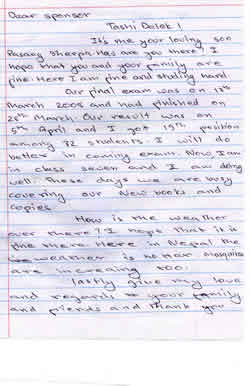 Dear sponser
Tashi Delek !
It's me your loving son
Pasang Sherpa. How are you there? I
hope that you and your family are
fine. Here I am fine and studing hard.
Our final exam was on 18th
March 2008 and had finished on
28th March. Our result was on
5th April and I got 15th position
among 32 students. I will do
better in coming exam. Now I am
in class seven and I am doing
well. These days we are busy
covering our New books and
copies.
How is the weather
over there?? I hope that it is
fine there. Here in Nepal the
weather is hotter mosquitos
are increasing too.
lastly give my love
and regards to your family
and friends and thank you